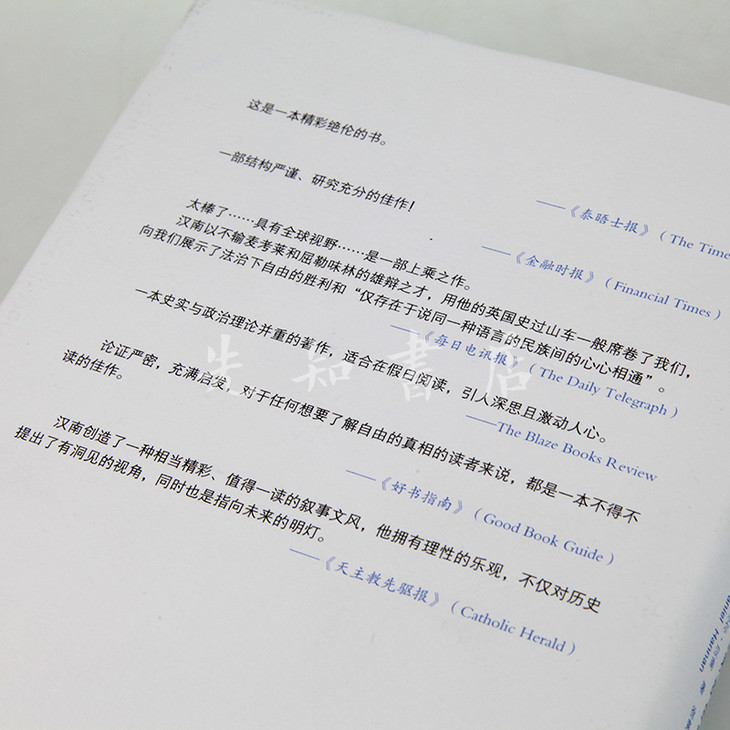 这是一本精彩绝伦的书。
——《泰晤士报》(The Time
一部结构严谨、研究充分的佳作！
——《金融时报》(Financial Times)
太棒了……具有全球视野……是一部上乘之作。
汉南以不输麦考莱和屈勒味林的雄辩之才，用他的英国史过山车一般席卷了我们，
向我们展示了法治下自由的胜利和“仅存在于说同一种语言的民族间的心心相通”。
——《每日电讯报》(The Daily Telegraph)
一本史实与政治理论并重的著作，适合在假日阅读，引人深思且激动人心。
——The Blaze Books Review
论证严密，充满启发，对于任何想要了解自由的真相的读者来说，都是一本不得不
读的佳作。
——《好书指南》(Good Book Guide)
汉南创造了一种相当精彩、值得一读的叙事文风，他拥有理性的乐观，不仅对历史
提出了有洞见的视角，同时也是指向未来的明灯。
——《天主教先驱报》(Catholic Herald)
先知書店
Hannan